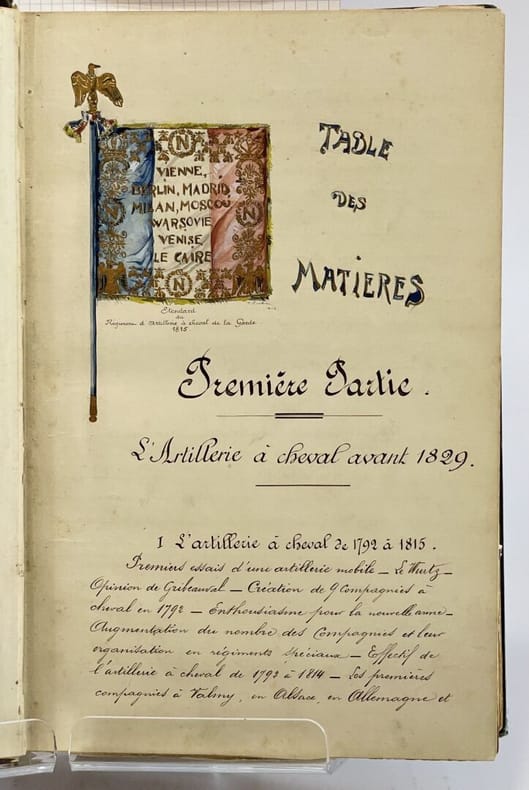 N
VIENNE,
BERLIN, MADRID,
MILAN, MOSCOU
N WARSOVIE N
VENISE
LE CAIRE
N
Etendard
du
Régiment d'Artillerie à cheval de la Garde
1815
TABLE
DES
MATIÈRES
Première Partie.
L'Artillerie à cheval avant 1829.
I L'artillerie à cheval de 1792 à 1815.
Premiers essais d'une artillerie mobile — Le Wurtz —
Opinion de Gribeauval — Création de 9 Compagnies à
cheval en 1792 — Enthousiasme pour la nouvelle arme —
Augmentation du nombre des Compagnies et leur
organisation en régiments spéciaux — Effectif de
l'artillerie à cheval de 1792 à 1814 — Les premières
compagnies à Valmy, en Alsace, en Allemagne et